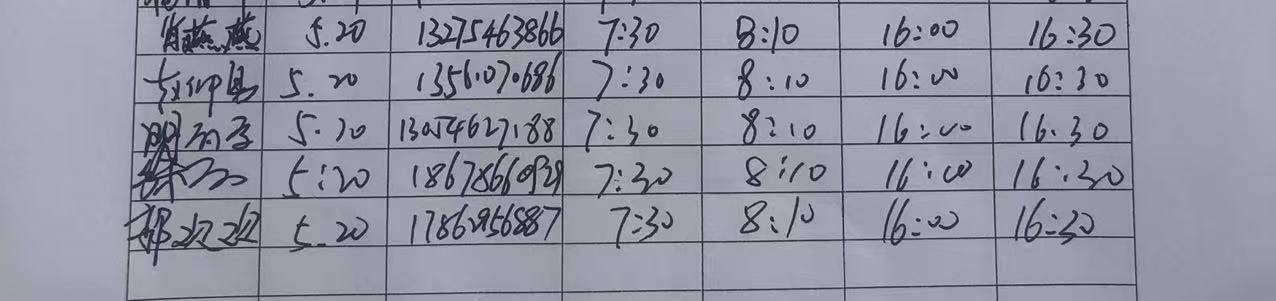 肖燕燕 5.20 13275463866 7:30 8:10 16:00 16:30
5.20 1356.070686 7:30 8:10 16:00 16:30
5.20 13054627188 7:30 8:10 16:00 16.30
5:20 7:30 8:10 16:00 16:30
5.20 7:30 8:10 16:00 16:30